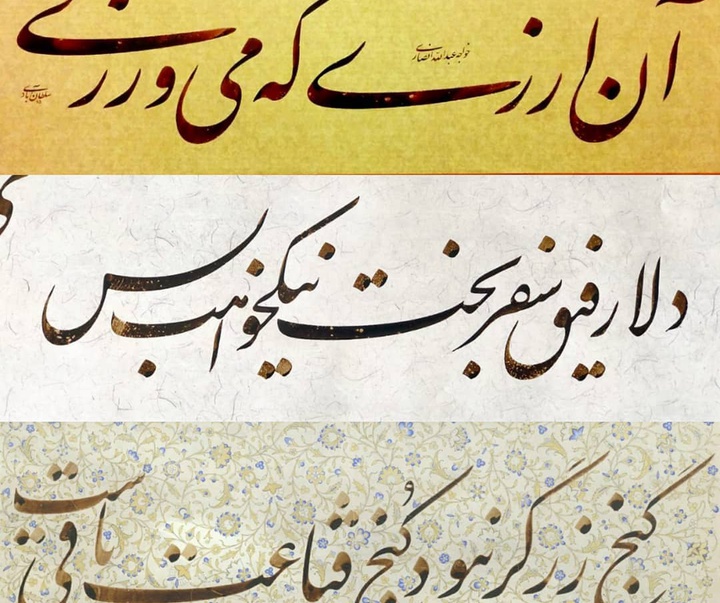 آن ارزی که می ورزی
خواجه عبدالله انصاری
دلا رفیق سفر بخت نیکخواهت بس
گنج زر گر نبود کنج قناعت باقیست